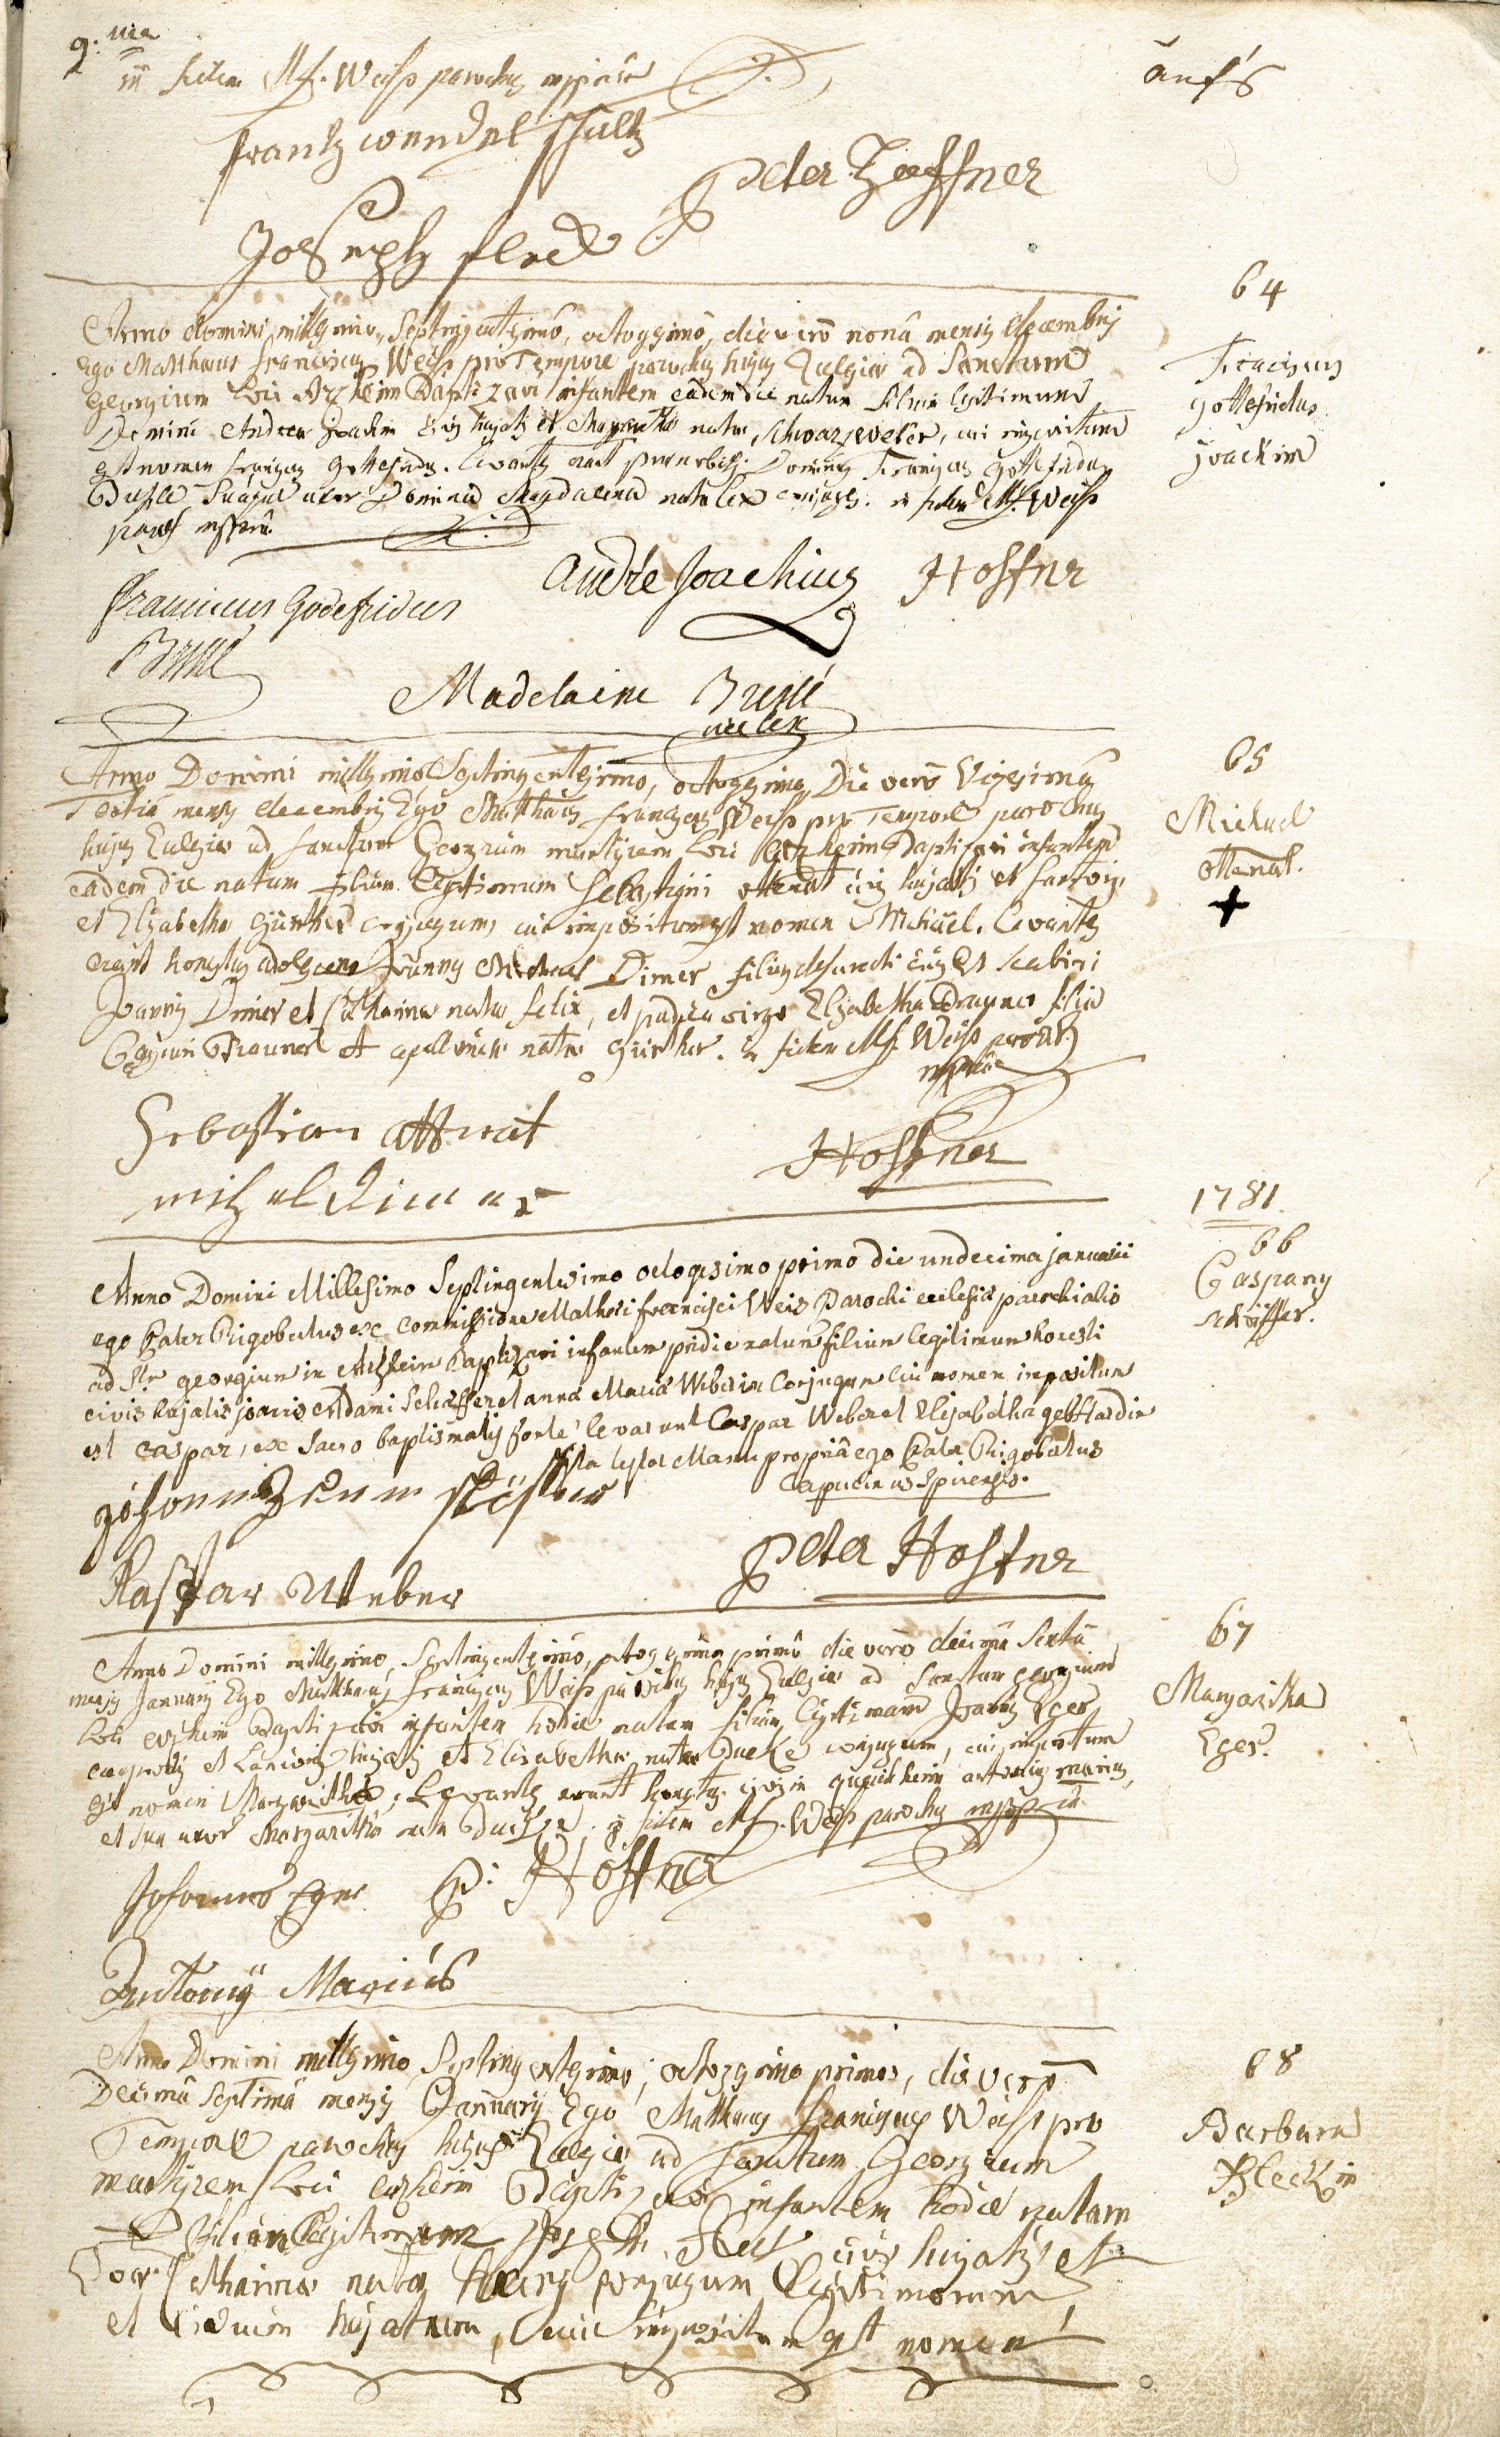 9.na
in fidem Mf. Weiss parochus mppriâ
anf's
frantz wendel schultz
Peter Hoffner
Joseph fleck
64
Anno domini millesimo, Septingentesimô, octogesimô, die verò nonâ mensis decembris
Franciscus
ego Matthaeus franciscus Weiss pro Tempore parochus hujus Ecclesiae ad Sanctum
gottefridus
georgium loci Arzheim Baptizavi infantem eadem die natum filium legitimum
joachim
Domini Andreae Joachim civis hujatis et Margaretha natae, schwarzweler, cui impositum
est nomen franciscus gottefridus. levantes erant Dominus Franciscus gottefridus
suaque uxor Domina Magdalena nata lex conjuges. in fidem Mf. Weiss
paroch mppriâ
andre Joachim Hoffner
franciscus Godefridus
Brulé
Madelaine Brulé
née lex
65
Anno Domini millesimo Septingentesimo, octogesimo, Die verò Vigesimâ
Michael
Tertia mensis decembris Ego Matthaeus franciscus Weiss pro Tempore parochus
ottenat.
hujus Ecclesiae ad sanctum Georgium martyrem loci Arzheim Baptizavi infantem
+
eadem die natum filium legitimum Sebastiani ottenat civis hujatis et sartoris,
et Elisabetha Günther conjugum, cui impositum est nomen Michäel. levantes
erant honestus adolescens Joannes Michael Dimer filius defuncti civis et scabini
Joannis Dimer et Catharina natae felix, et pudica virgo Elisabetha Brauner filia
Brauner et apolloniae natae Günther. in fidem Mf. Weiss paroch.
mppriâ
Sebastian attnat
Hoffner
michel Dimer
1781.
66
Anno Domini Millesimo Septingentesimo octogesimo primo die undecima januarii
Casparus
ego Pater Rigobertus ex commissione Mathaei francisci Weis Parochi ecclesiae parochialis
schäffer.
ad Stm georgium in Arzheim Baptizavi infantem pridie natum filium legitimum honesti
civis hujatis joannis Adami Schäffer et anna Maria Weberin Conjugum cui nomen impositum
est caspar, ex Sacro baptismatis fonte levarunt Caspar Weber et Elisabetha gebhardin
ita testor Manu propriâ ego Pater Rigobertus
Capucinus Spirensis.
johannes adam schäffer
Peter Hoffner
Kaspar Weber
67
Anno Domini millesimo, Septingentesimo, octogesimo primô die verò decimâ Sextâ
mensis Januarij Ego Matthaeus franciscus Weiss parochus hujus Ecclesiae ad Sanctum georgium
Margaritha
loci arzheim Baptizavi infantem hodie natam filiam legitimam Joannis Eger
Eger.
et hujatis et Elisabetha natae conjugum, cui impositum
est nomen Margaritha, levantes erant honestus civis in queichheim antonius marius,
et sua uxor Margaritha nata. in fidem Mf. Weiss parochus mppriâ
Johannes Eger P: Höffner
Antony Mariús
68
Anno Domini millesimo Septingentesimo, octogesimo primo, die verò
Decimâ Septimâ mensis Januarij Ego Matthaeus franciscus Weiss pro
Barbara
Tempore parochus hujus Ecclesiae ad Sanctum Georgium
fleckin
martyrem loci arzheim Baptizavi infantem hodie natam
filiam legitimam Joseph fleck civis hujatis et
Catharina natae conjugum legitimorum
et civium hujatium, cui impositum est nomen